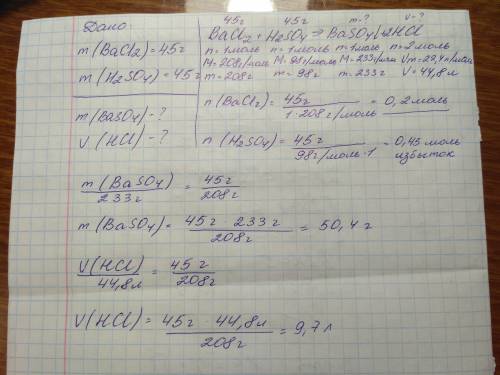 Дано:
m(BaCl2)=45г
m(H2SO4)=45г
m(BaSO4)-?
V(HCl)-?
45г 45г m-? V-?
BaCl2+H2SO4=>BaSO4↓+2HCl
n=1моль n=1моль n=1моль n=2моль
M=208г/моль M=98г/моль M=233г/моль Vm=22,4л/моль
m=208г m=98г m=233г V=44,8л
n(BaCl2)=45г/1·208г/моль=0,2моль
n(H2SO4)=45г/98г/моль·1=0,45моль
избыток
m(BaSO4)/233г=45г/208г
m(BaSO4)=45г·233г/208г=50,4г
V(HCl)/44,8л=45г/208г
V(HCl)=45г·44,8л/208г=9,7л